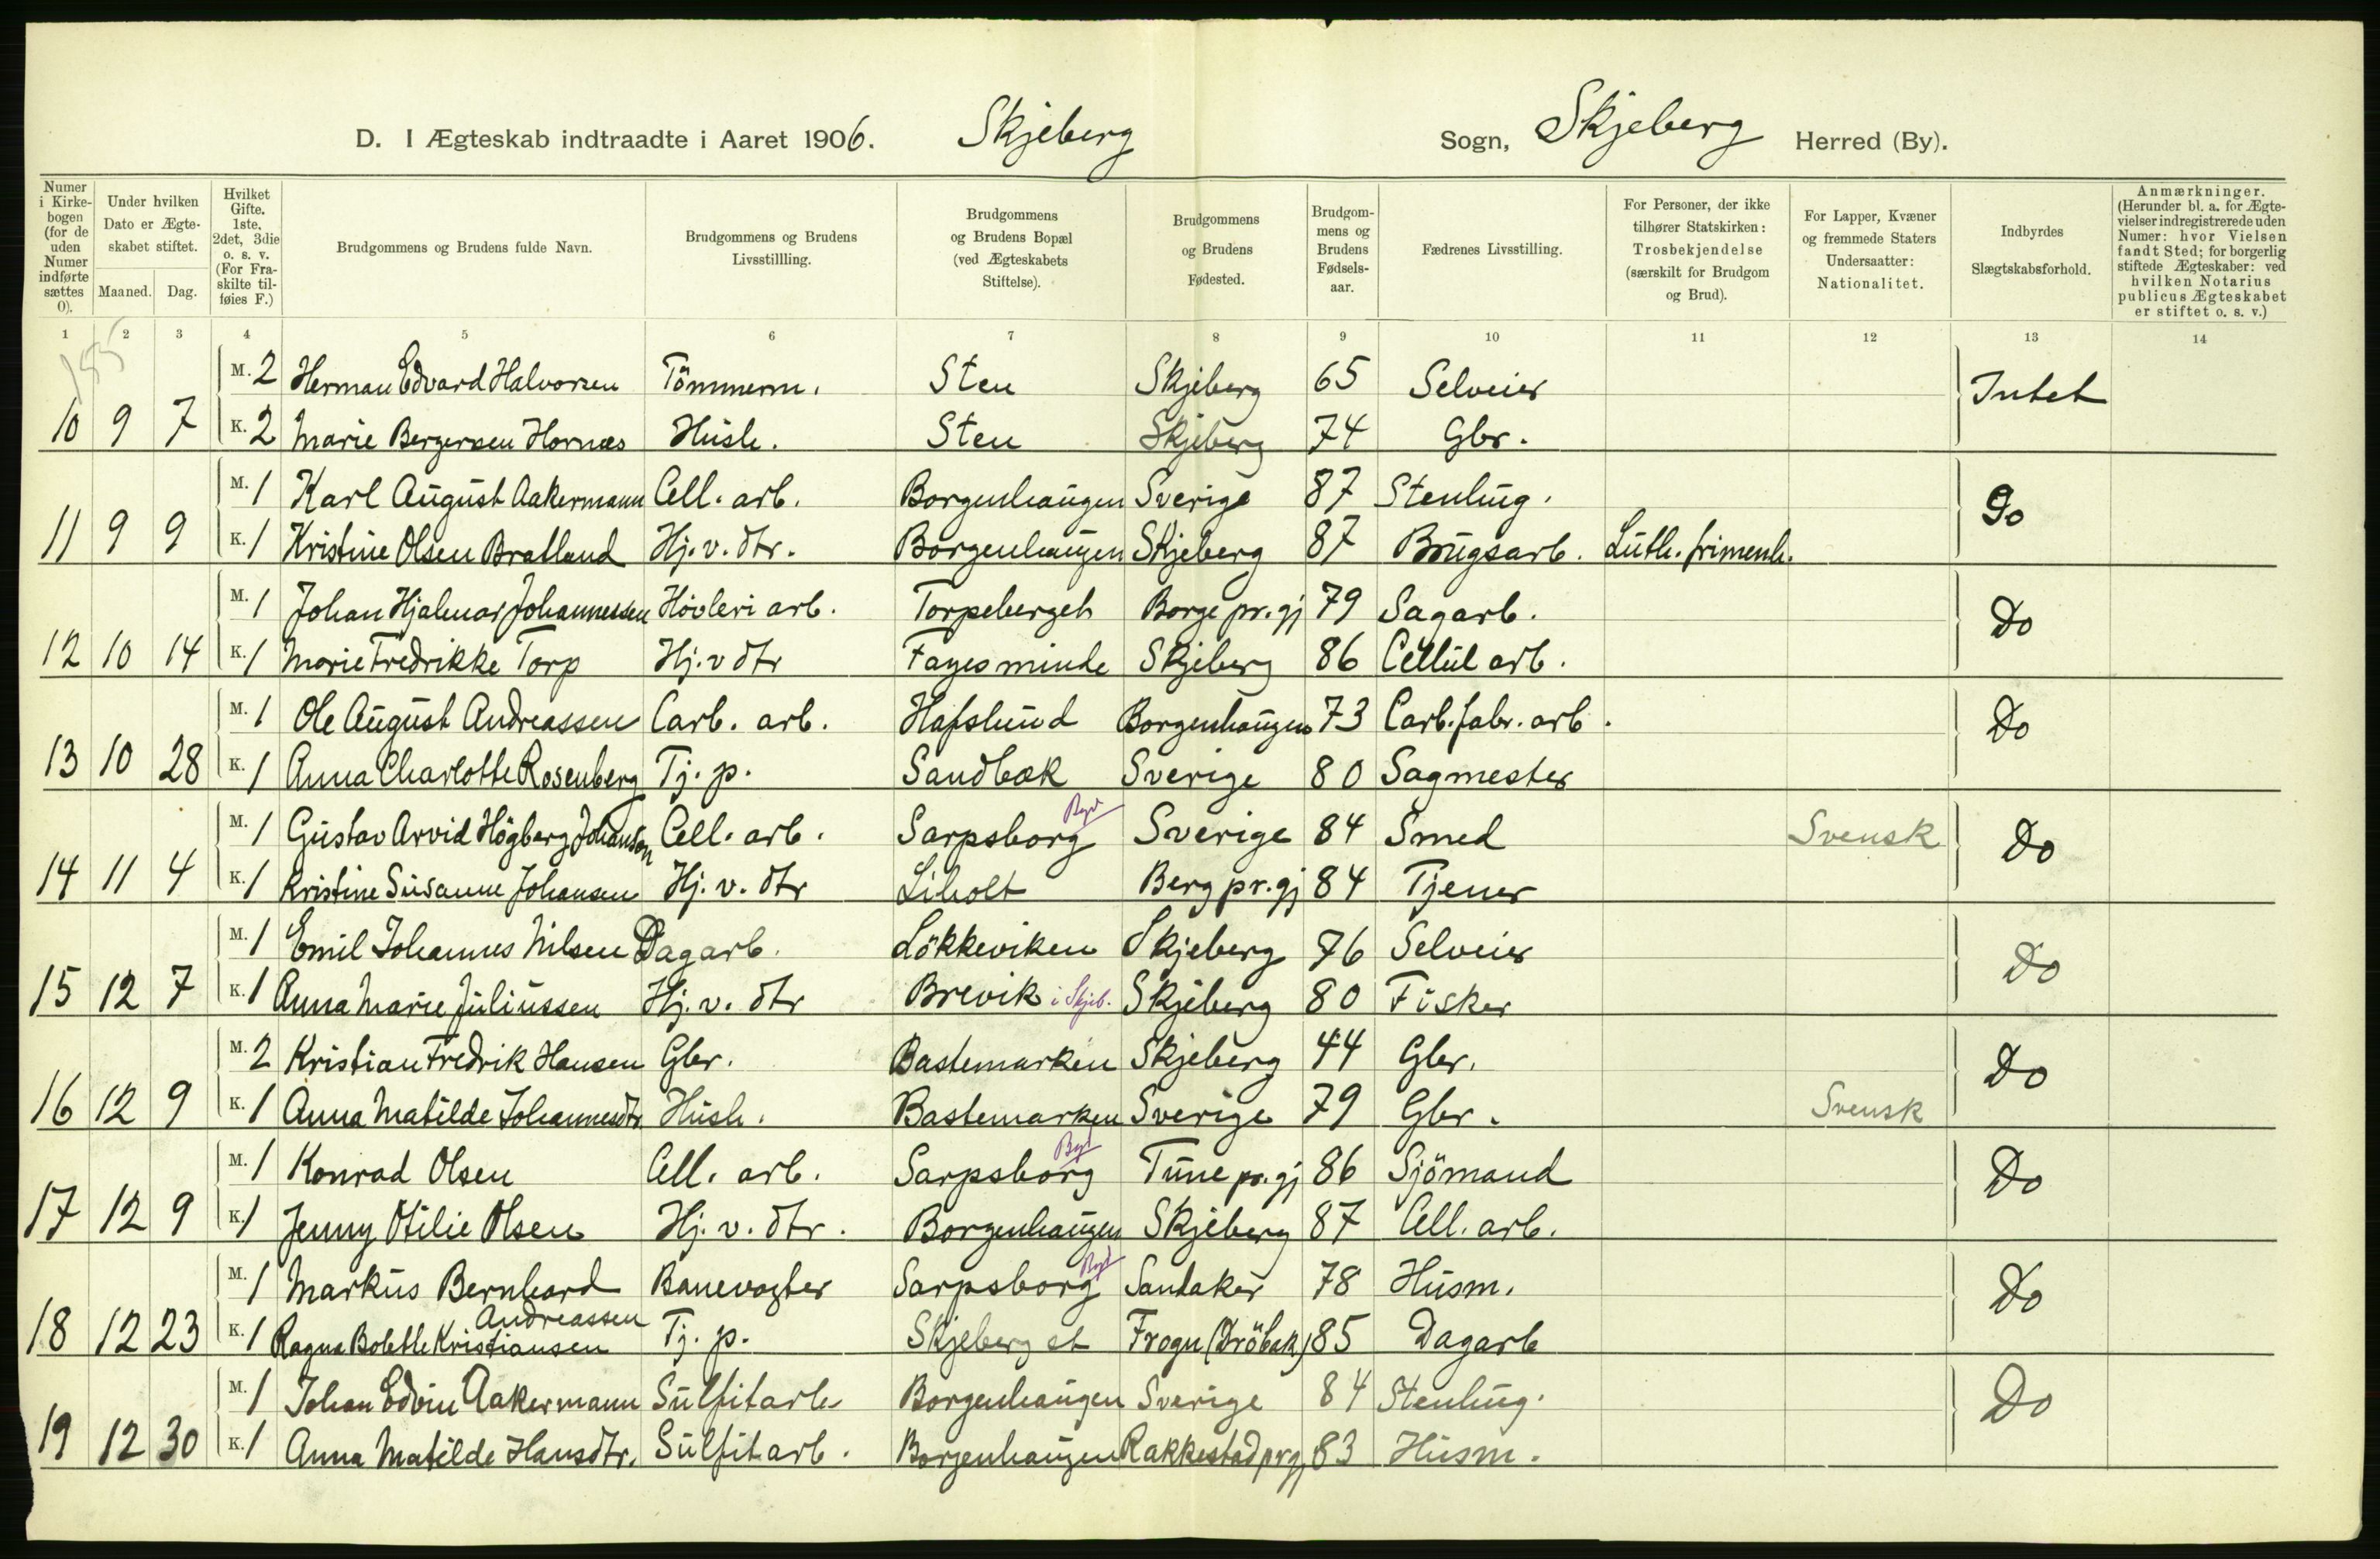 D. I Ægteskab indtraadte i Aaret 1906. Skjeberg Sogn, Skjeberg Herred (By).
Numer i Kirkebogen (for de uden Numer indførte sættes 0).
Under hvilken Dato er Ægteskabet stiftet.
Maaned. Dag.
Hvilket Gifte. 1ste, 2det, 3die o. s. v. (For Fraskilte tilføies F.)
Brudgommens og Brudens fulde Navn.
Brudgommens og Brudens Livsstillling.
Brudgommens og Brudens Bopæl (ved Ægteskabets Stiftelse).
Brudgommens og Brudens Fødested.
Brudgommens og Brudens Fødselsaar.
Fædrenes Livsstilling.
For Personer, der ikke tilhører Statskirken: Trosbekjendelse (særskilt for Brudgom og Brud).
For Lapper, Kvæner og fremmede Staters Undersaatter: Nationalitet.
Indbyrdes Slægtskabsforhold.
Anmærkninger. (Herunder bl. a. for Ægtevielser indregistrerede uden Numer: hvor Vielsen fandt Sted; for borgerlig stiftede Ægteskaber: ved hvilken Notarius publicus Ægteskabet er stiftet o. s. v.)
1 2 3 4 5 6 7 8 9 10 11 12 13 14
M. 2 Herman Edvard Halvorsen Tömmerm. Sten Skjeberg 65 Selveier Intet
10 9 7 K. 2 Marie Bergersen Hornæs Hüsh. Sten Skjeberg 74 Gbr.
M. 1 Karl Aügüst Aakermann Cell. arb. Borgenhaügen Sverige 87 Stenhüg. Do
11 9 9 K. 1 Kristine Olsen Bratland Hj. v. dtr. Borgenhaügen Skjeberg 87 Brügsarb. Lüth. frimenh.
M. 1 Johan Hjalmar Johannessen Høvleri arb. Torpeberget Borge pr.gj 79 Sagarb. Do
12 10 14 K. 1 Marie Fredrikke Torp Hj. v dtr Fagesminde Skjeberg 86 Cellül arb.
M. 1 Ole Aügüst Andreassen Carb. arb. Hafslünd Borgenhaügen 73 Carb. fabr. arb. Do
13 10 28 K. 1 Anna Charlotte Rosenberg Tj. p. Sandbæk Sverige 80 Sagmester
M. 1 Güstav Arvid Högberg Johanson Cell. arb. Sarpsborg Sverige 84 Smed Svensk Do
14 11 4 K. 1 Kristine Süsanne Johansen Hj. v. dtr Liholt Berg pr.gj 84 Tjener
M. 1 Emil Johannes Nilsen Dagarb. Lökkeviken Skjeberg 76 Selveier Do
15 12 7 K. 1 Anna Marie Jüliüssen Hj. v. dtr Brevik i Skjeb. Skjeberg 80 Fisker
M. 2 Kristian Fredrik Hansen Gbr. Bastemarken Skjeberg 44 Gbr. Do
16 12 9 K. 1 Anna Matilde Johannesdtr Hüsh. Bastemarken Sverige 79 Gbr. Svensk
M. 1 Konrad Olsen Cell. arb. Sarpsborg Tüne pr.gj 86 Sjömand Do
17 12 9 K. 1 Jenny Otilie Olsen Hj. v. dtr. Borgenhaügen Skjeberg 87 Cell. arb.
M. 1 Markus Bernhard Banevogter Sarpsborg Sandaker 78 Hüsm. Do
Andreassen
18 12 23 K. 1 Ragna Bolette Kristiansen Tj. p. Skjeberg st Frogn (Dröbak) 85 Dagarb
M. 1 Johan Edvin Aakermann Sülfitarb Borgenhaügen Sverige 84 Stenhüg. Do
19 12 30 K. 1 Anna Matilde Hansdtr. Sülfitarb. Borgenhaügen Rakkestad prgj 83 Hüsm.